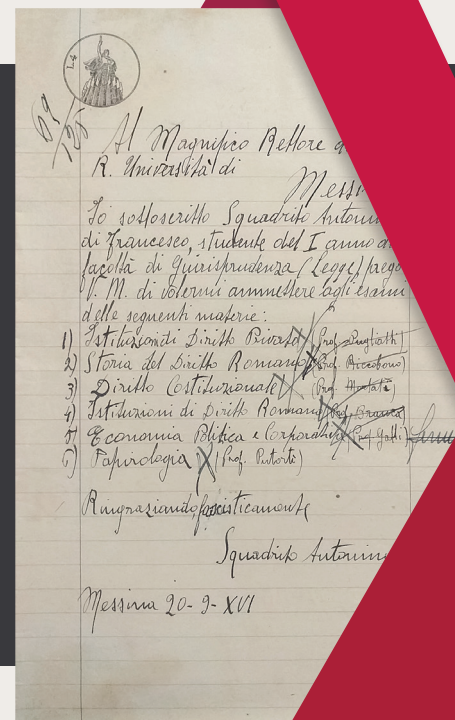 L4
69
125
Al Magnifico Rettore d
R. Università di
Messi
Io sottoscritto Squadrito Antonin
di Francesco, studente del I anno d
facoltà di Giurisprudenza (Legge) prego
V. M. di volermi ammettere agli esami
delle seguenti materie:
1) Istituzioni di Diritto Privato (Prof. Pugliatti)
2) Storia del Diritto Romano (Prof. Riccobono)
3) Diritto Costituzionale (Prof.
4) Istituzioni di Diritto Romano (Prof. Branca)
5) Economia Politica e Corporativa (Prof. Galli)
6) Papirologia (Prof.
Ringraziando fascisticamente
Squadrito Antonino
Messina 20-9-XVI